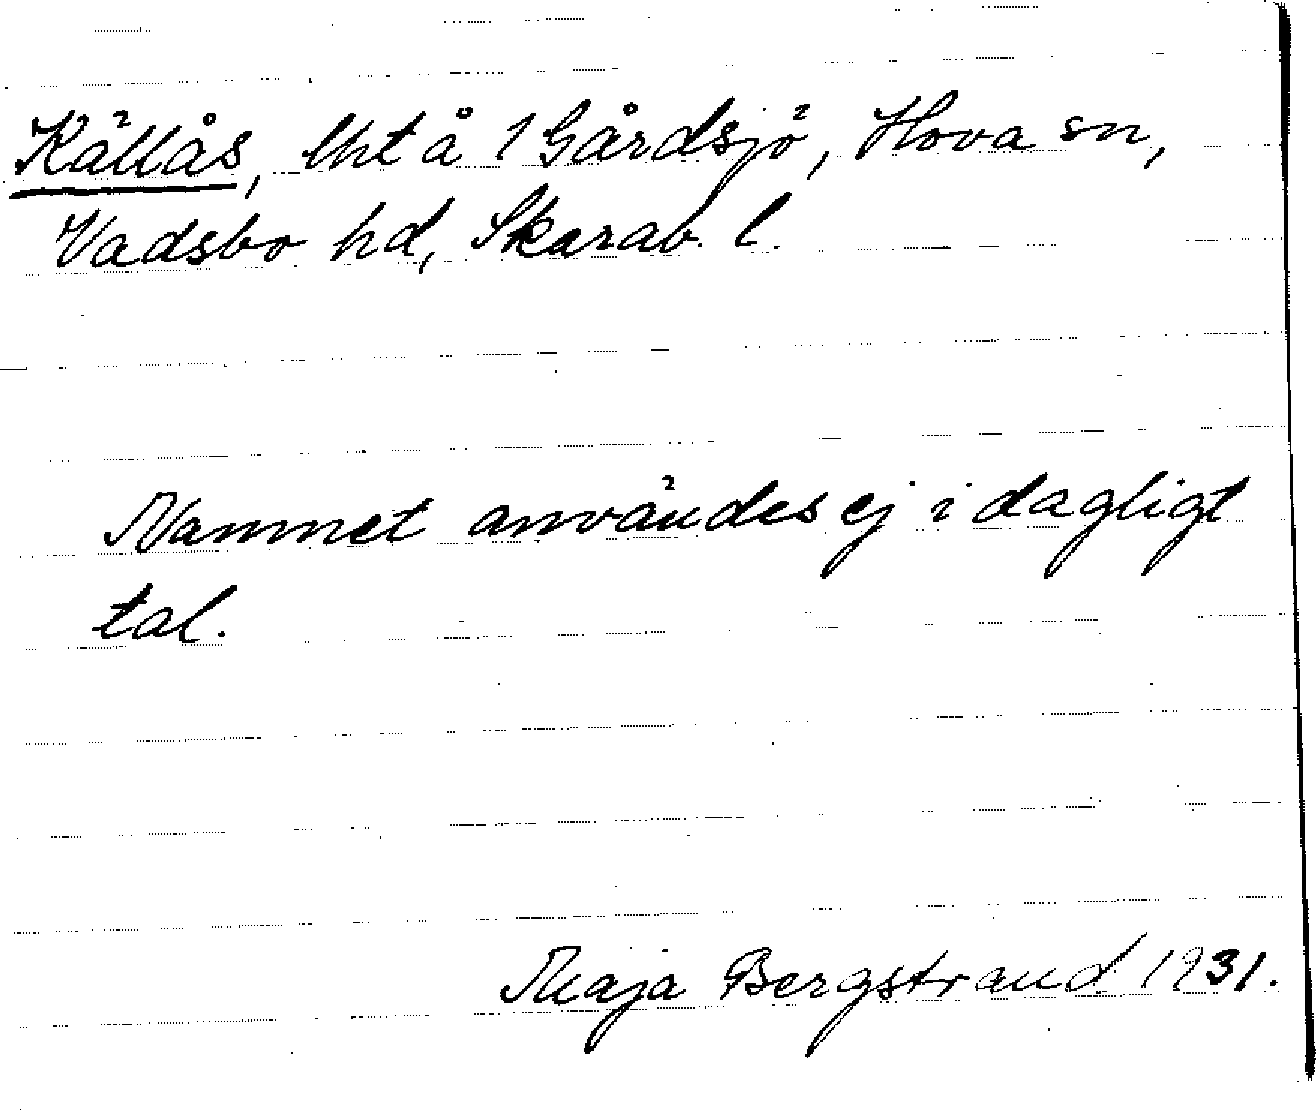 Källås, lht å 1 Gårdsjö, Hova sn,
Vadsbo hd, Skarab. l.
Namnet användes ej i dagligt
tal.
Maja Bergstrand 1931.